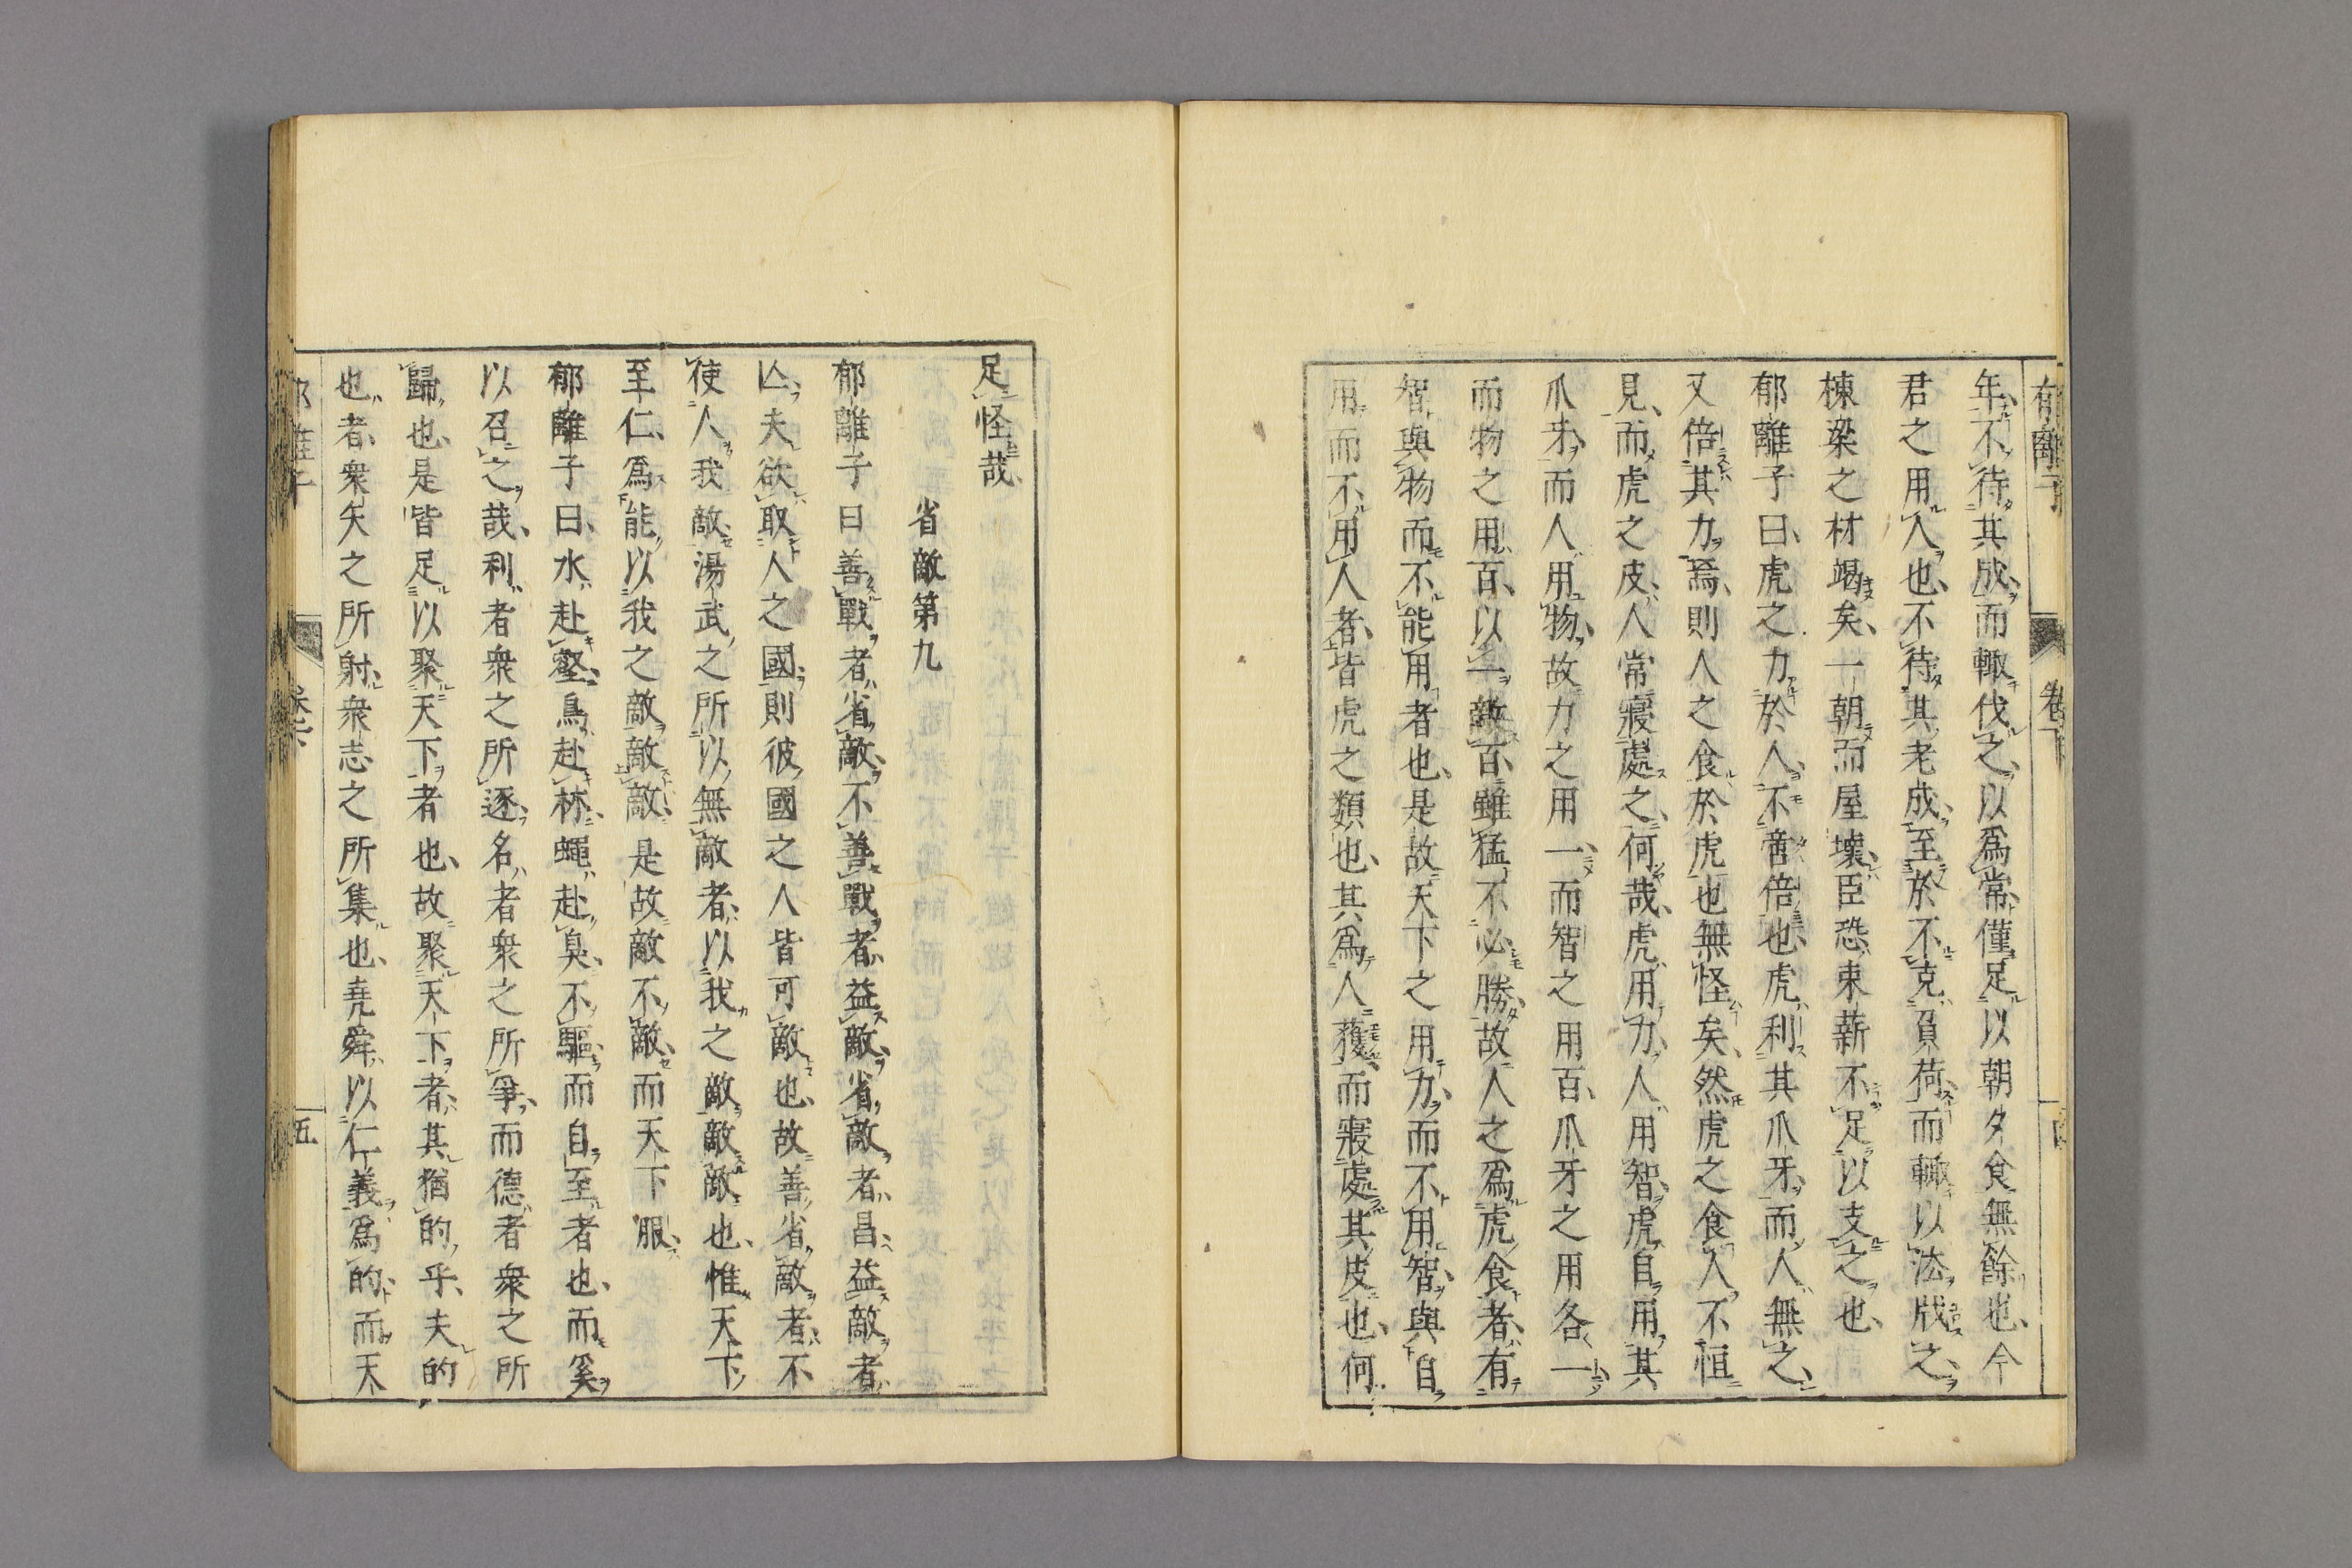 郁離子 卷下
年不待其成而輙伐之以爲常僅足以朝夕食無餘也今
君之用人也不待其老成至於不克負荷而輙以法戕之
棟梁之材竭矣一朝而屋壞臣恐束薪不足以支之也
郁離子曰虎之力於人不啻倍也虎利其爪牙而人無之
又倍其力焉則人之食於虎也無怪矣然虎之食人不恒
見而虎之皮人常寢處之何哉虎用力人用智虎自用其
爪牙而人用物故力之用一而智之用百爪牙之用各一
而物之用百以一敵百雖猛不必勝故人之爲虎食者有
智與物而不能用者也是故天下之用力而不用智與自
用而不用人者皆虎之類也其爲人獲而寢處其皮也何
足怪哉
省敵第九
郁離子曰善戰者省敵不善戰者益敵省敵者昌益敵者
亾夫欲取人之國則彼國之人皆可敵也故善省敵者不
使人我敵湯武之所以無敵者以我之敵敵敵也惟天下
至仁爲能以我之敵敵敵是故敵不敵而天下服
郁離子曰水赴壑鳥赴林蠅赴臭不驅而自至者也而奚
以召之哉利者衆之所逐名者衆之所爭而德者衆之所
歸也是皆足以聚天下者也故聚天下者其猶的乎夫的
也者衆矢之所射衆志之所集也堯舜以仁義爲的而天
五